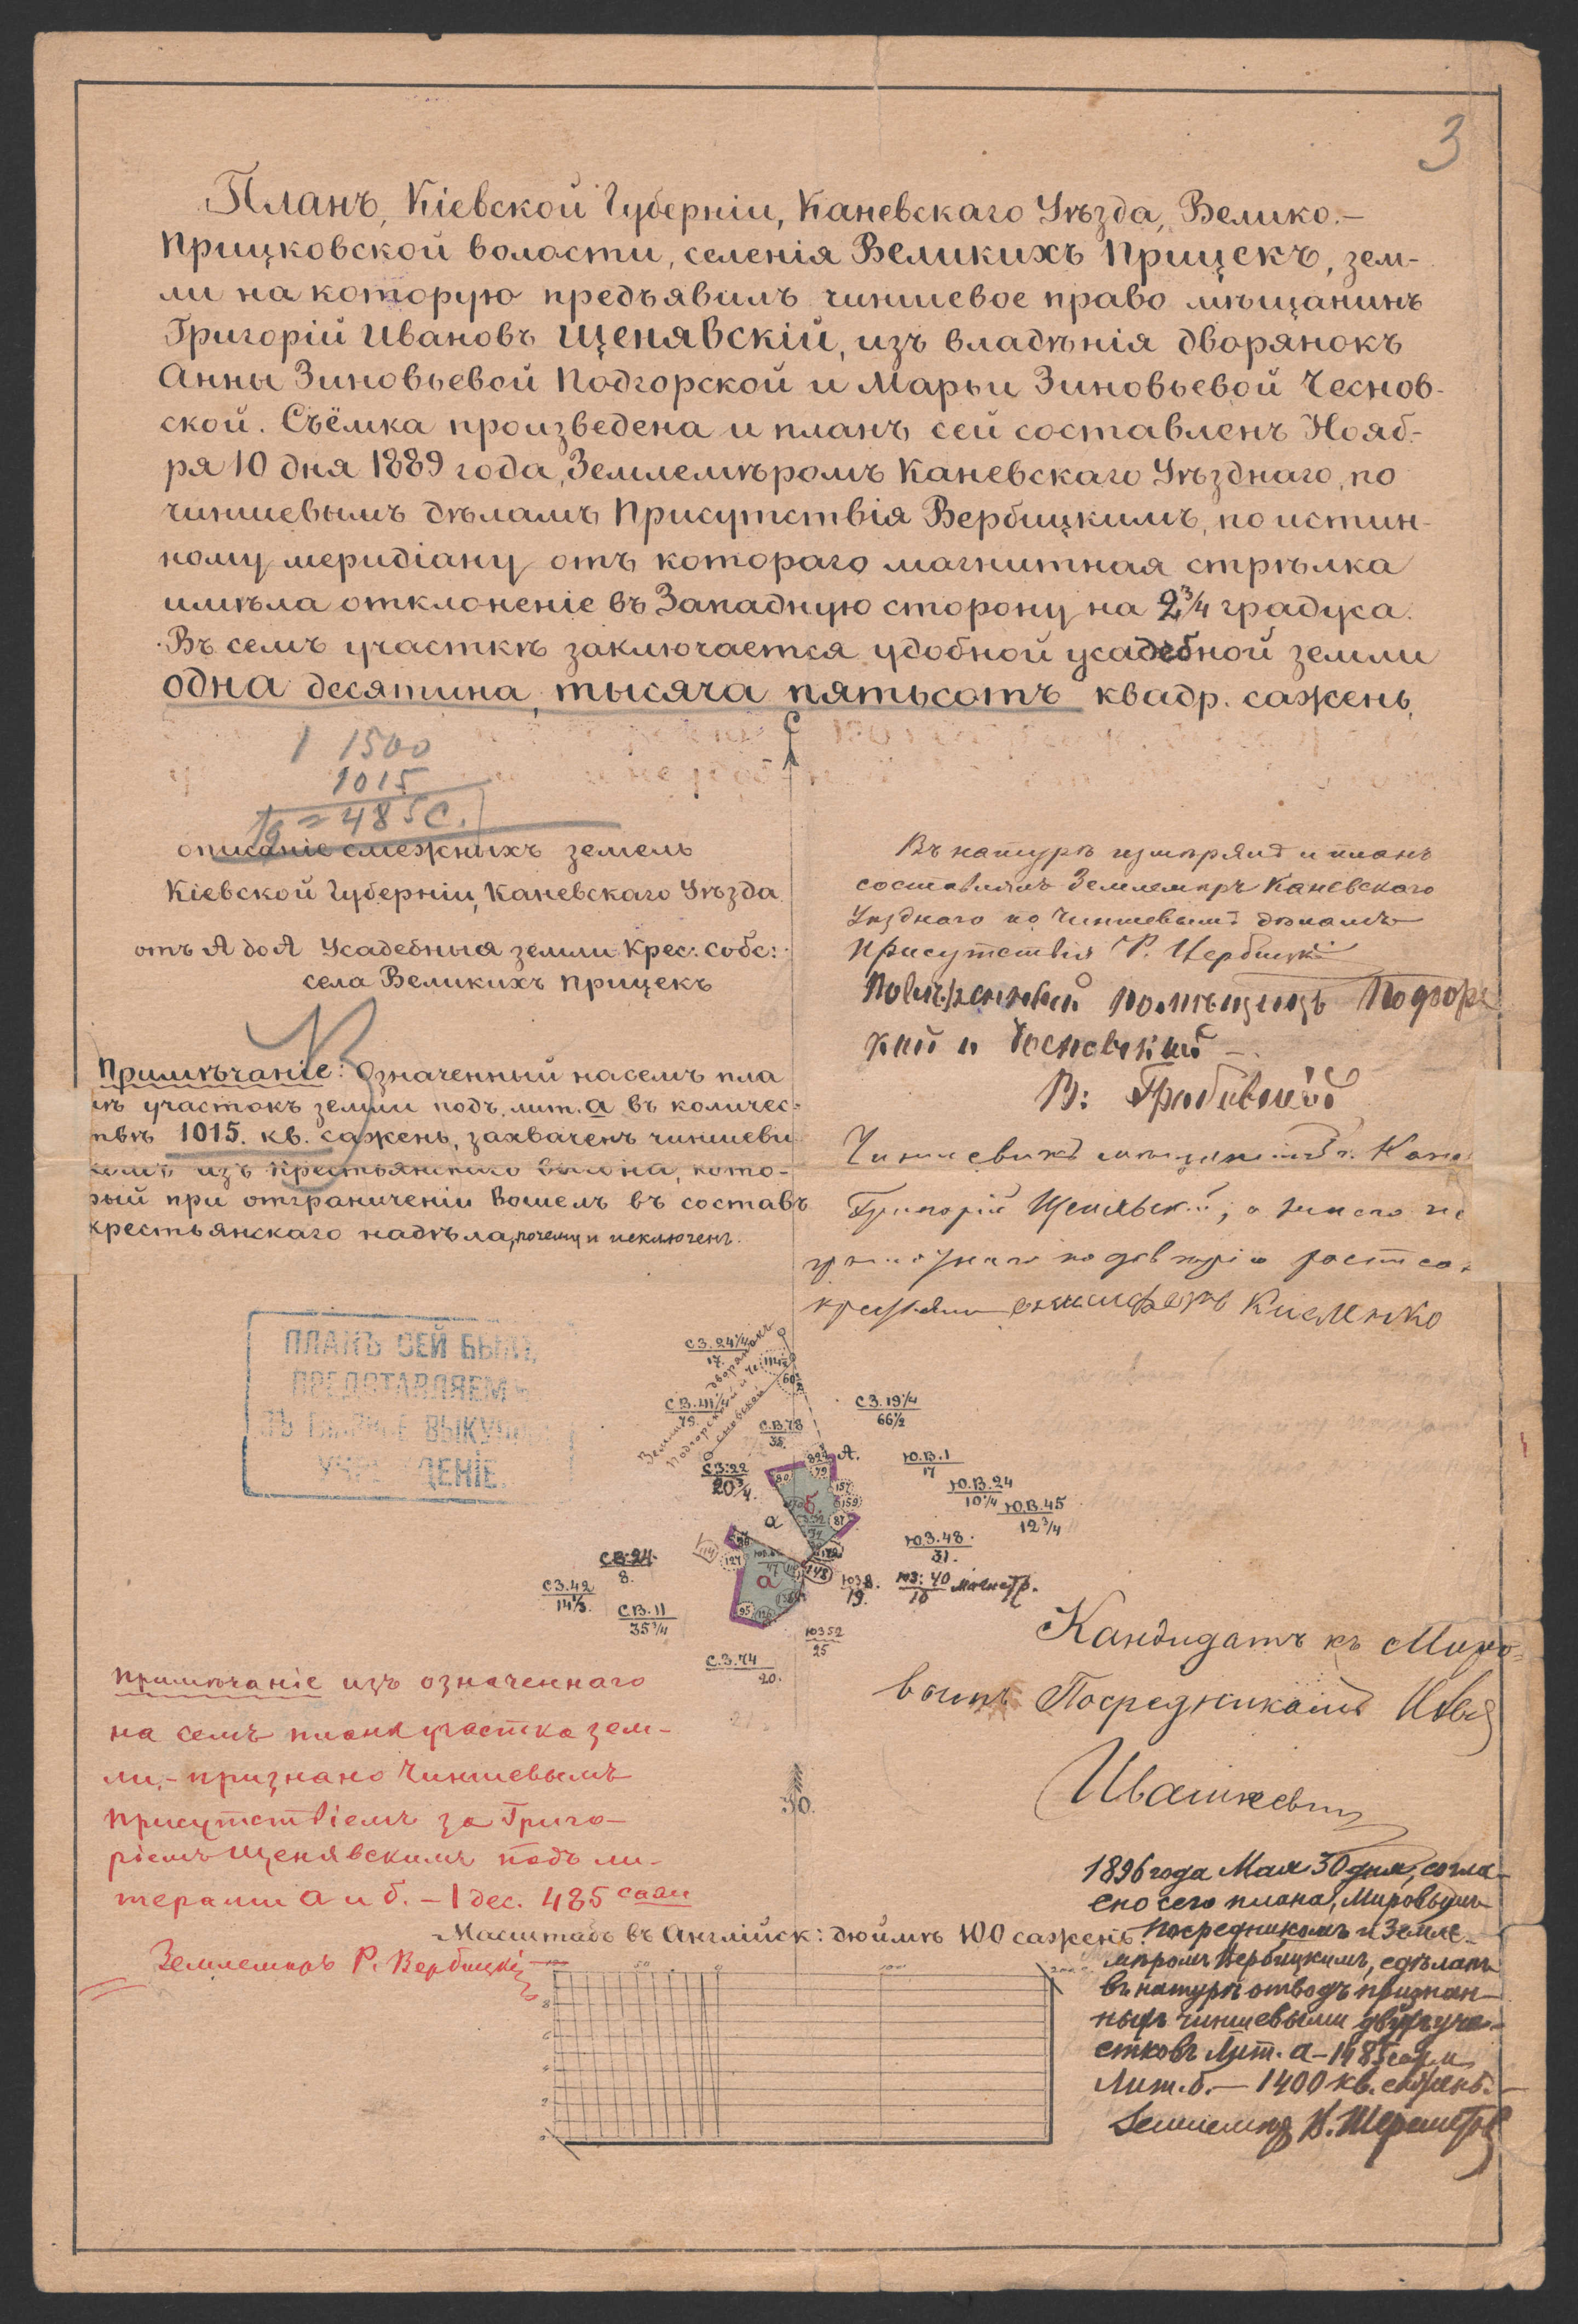 3
Планъ, Кіевской Губерніи, Каневскаго Уѣзда, Велико-
Прицковской волости, селенія Великихъ Прицекъ, зем-
ли на которую предъявилъ чиншевое право мѣщанинъ
Григорій Ивановъ Щенявскій, изъ владѣнія дворянокъ
Анны Зиновьевой Подгорской и Марьи Зиновьевой Чеснов-
ской. Съёмка произведена и планъ сей составленъ Нояб-
ря 10 дня 1889 года, Землемѣромъ Каневскаго Уѣзднаго, по
чиншевымъ дѣламъ Присутствія Вербицкимъ, по истин-
ному меридіану отъ котораго магнитная стрѣлка
имѣла отклоненіе въ Западную сторону на 2¾ градуса.
Въ семъ участкѣ заключается удобной усадебной земли
одна десятина, тысяча пятьсотъ квадр. сажень,
С
1 1500
1015
= 485 С.
описаніе смежныхъ земель
Кіевской Губерніи, Каневскаго Уѣзда
отъ А до А Усадебныя земли Крес: собс:
села Великихъ Прицекъ
Примѣчаніе: Означенный на семъ пла
нѣ участокъ земли подъ лит. а въ количес-
твѣ 1015. кв. сажень, захваченъ чиншеви
комъ изъ крестьянскаго выгона, кото-
рый при отграниченіи вошелъ въ составъ
крестьянскаго надѣла, почему и исключенъ.
Въ натурѣ измѣрялъ и планъ
составлялъ Землемѣръ Каневскаго
Уѣзднаго по Чиншевымъ дѣламъ
Присутствія Р. Вербицкій
Повѣренный Помѣщицъ Подгорс
кой и Чесновской
В: Грабовскій
Чиншевикъ мѣщанинъ г. Кане
Григорій Щенявскій, а за него не
грамотнаго по довѣрію росписа
Кисленко
ПЛАНЪ СЕЙ БЫЛЪ
ПРЕДСТАВЛЯЕМЪ
ВЫКУПНОЕ
УЧРЕЖДЕНІЕ.
С.З. 24¼
17.
С.В. 41¼
79.
С.В. 78
35.
С.З. 19¼
66½
С.З. 22
20¾.
А.
Ю.В. 1
17
Ю.В. 24
10¼
Ю.В. 45
12¾
Ю.З. 48.
31.
С.В. 24.
8.
С.З. 42
14⅓.
С.В. 11
35¾
Ю.З. 8.
19.
ЮЗ: 40
10
Ю.З. 52
25
С.З. 74
20.
а
б
а
Примѣчаніе изъ означеннаго
на семъ планѣ участка зем-
ли, - признано Чиншевымъ
Присутствіемъ за Григо-
ріемъ Щенявскимъ подъ ли-
терами а и б. - 1 дес. 485 саж
Землемѣръ Р. Вербицкій
Ю.
Кандидатъ къ Миро-
вымъ Посредникамъ
Ивашкевич
1896 года Мая 30 дня, согла-
сно сего плана, Мировымъ
Посредникомъ и Земле-
мѣромъ Вербицкимъ, сдѣланъ
въ натурѣ отводъ признан-
ныхъ чиншевыми двухъ уча-
стковъ Лит. а - 1485 саж и
Лит. б. - 1400 кв. сажень. -
Землемѣръ
Масштабъ въ Англійск: дюймѣ 100 сажень.